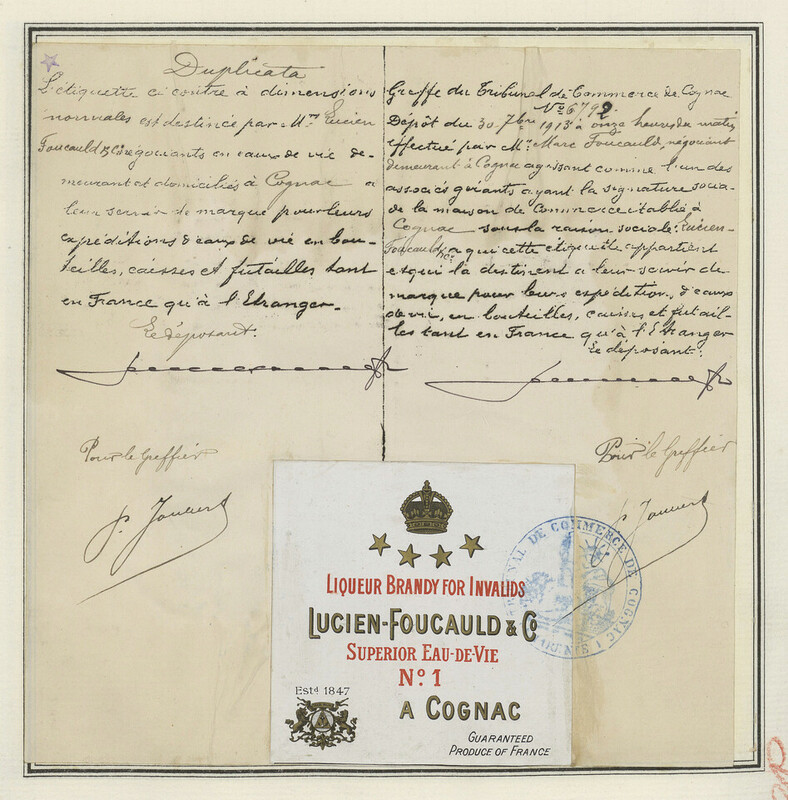 Duplicata
L'étiquette ci contre à dimensions
normales est destinée par Mrs Lucien
Foucauld & Co négociants en eaux de vie de-
meurant et domiciliés à Cognac a
leur servir de marque pour leurs
expéditions d'eaux de vie en bou-
teilles, caisses et futailles tant
en France qu'à l'Etranger.
Le déposant.
Pour le Greffier
Greffe du Tribunal de Commerce de Cognac
No 6792
Dépôt du 30 7bre 1913 à onze heures du matin
effectué par Mr Marc Foucauld, négociant
demeurant à Cognac agissant comme l'un des
associés gérants ayant la signature socia-
le de la maison de Commerce établie à
Cognac sous la raison sociale: Lucien-
Foucauld & Co a qui cette etiquette appartient
et qui la destinent a leur servir de
marque pour leurs expéditions, d'eaux
de vie, en bouteilles, caisses et futail-
les tant en France qu'à l'Etranger
Le déposant.
Pour le Greffier
LIQUEUR BRANDY FOR INVALIDS
LUCIEN-FOUCAULD & Co
SUPERIOR EAU-DE-VIE
No 1
Estd 1847
A COGNAC
GUARANTEED
PRODUCE OF FRANCE
TRIBUNAL DE COMMERCE DE COGNAC
CHARENTE